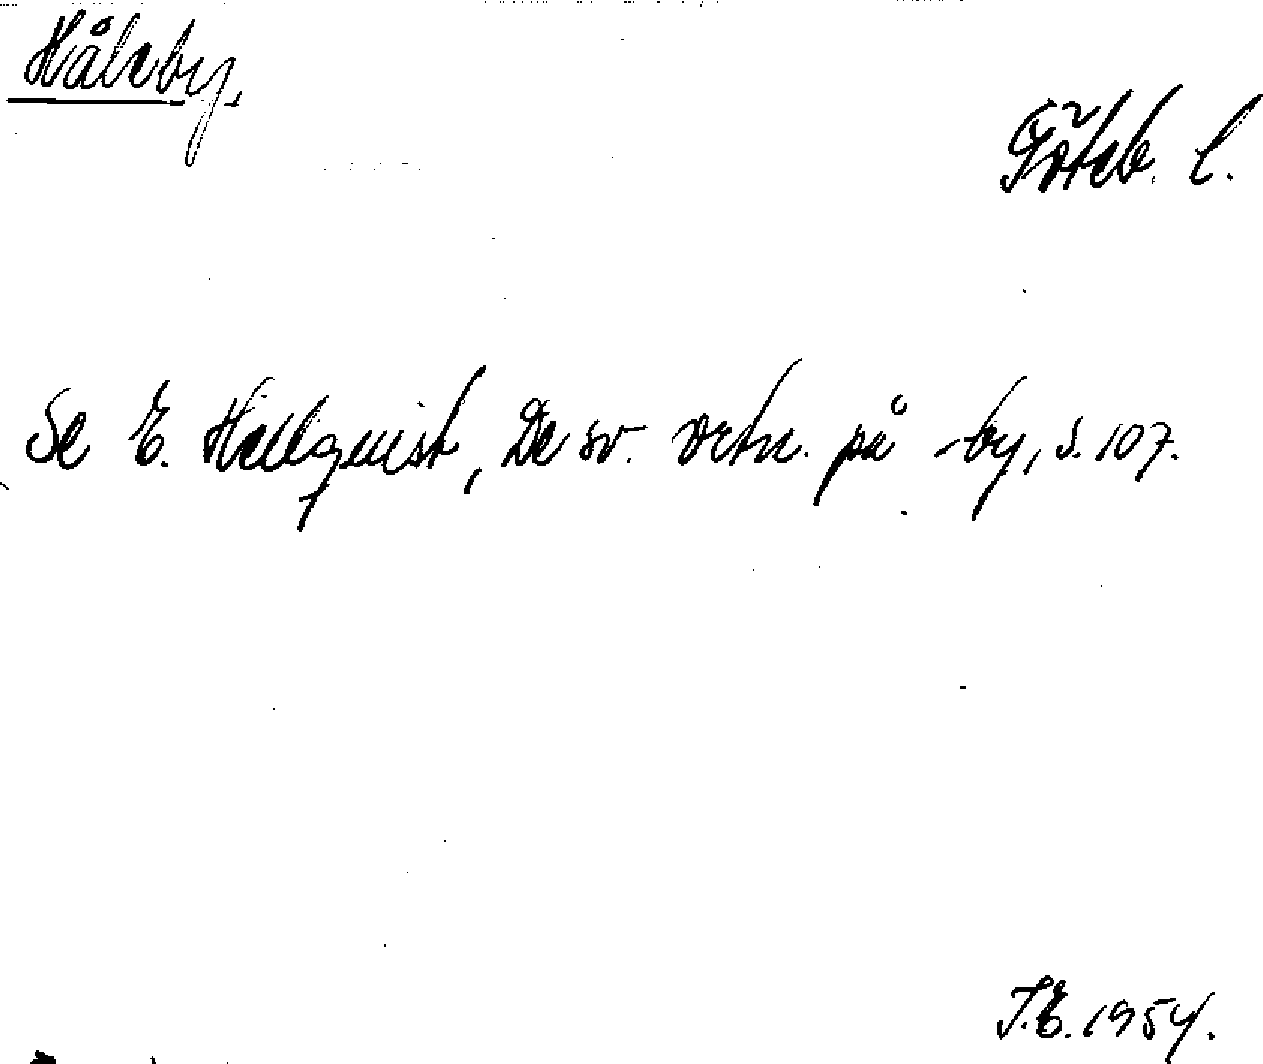 Håleby,
Göteb. l.
Se E. Hellquist, De sv. ortn. på -by, s. 107.
J.E. 1954.